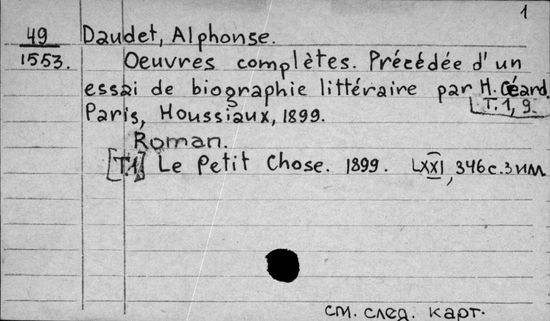 1
49 Daudet, Alphonse.
1553. Oeuvres complètes. Précédée d'un
essai de biographie littéraire par H. Céard
Paris, Houssiaux, 1899. T. 1, 9
Roman.
[T.1] Le Petit Chose. 1899. LXXI, 346 с. 3 илл
см. след. карт.